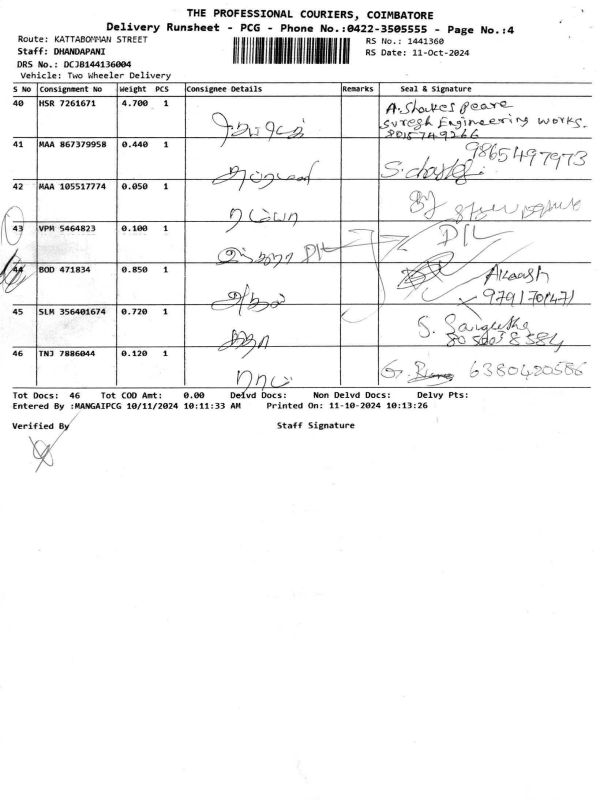 THE PROFESSIONAL COURIERS, COIMBATORE
Delivery Runsheet - PCG - Phone No.:0422-3505555 - Page No.:4
Route: KATTABOMMAN STREET
RS No.: 1441360
Staff: DHANDAPANI
RS Date: 11-Oct-2024
DRS No.: DCJB144136004
Vehicle: Two Wheeler Delivery
S No Consignment No Weight PCS Consignee Details Remarks Seal & Signature
40 HSR 7261671 4.700 1 A. Shakespeare
Suresh Engineering works.
8015749266
41 MAA 867379958 0.440 1 9865497973
42 MAA 105517774 0.050 1 ரம்யா
43 VPM 5464823 0.100 1 D/L D/L
44 BOD 471834 0.850 1 Akaash
45 SLM 356401674 0.720 1 S.
46 TNJ 7886044 0.120 1 G. 6380420586
Tot Docs: 46 Tot COD Amt: 0.00 Delvd Docs: Non Delvd Docs: Delvy Pts:
Entered By :MANGAIPCG 10/11/2024 10:11:33 AM Printed On: 11-10-2024 10:13:26
Verified By Staff Signature